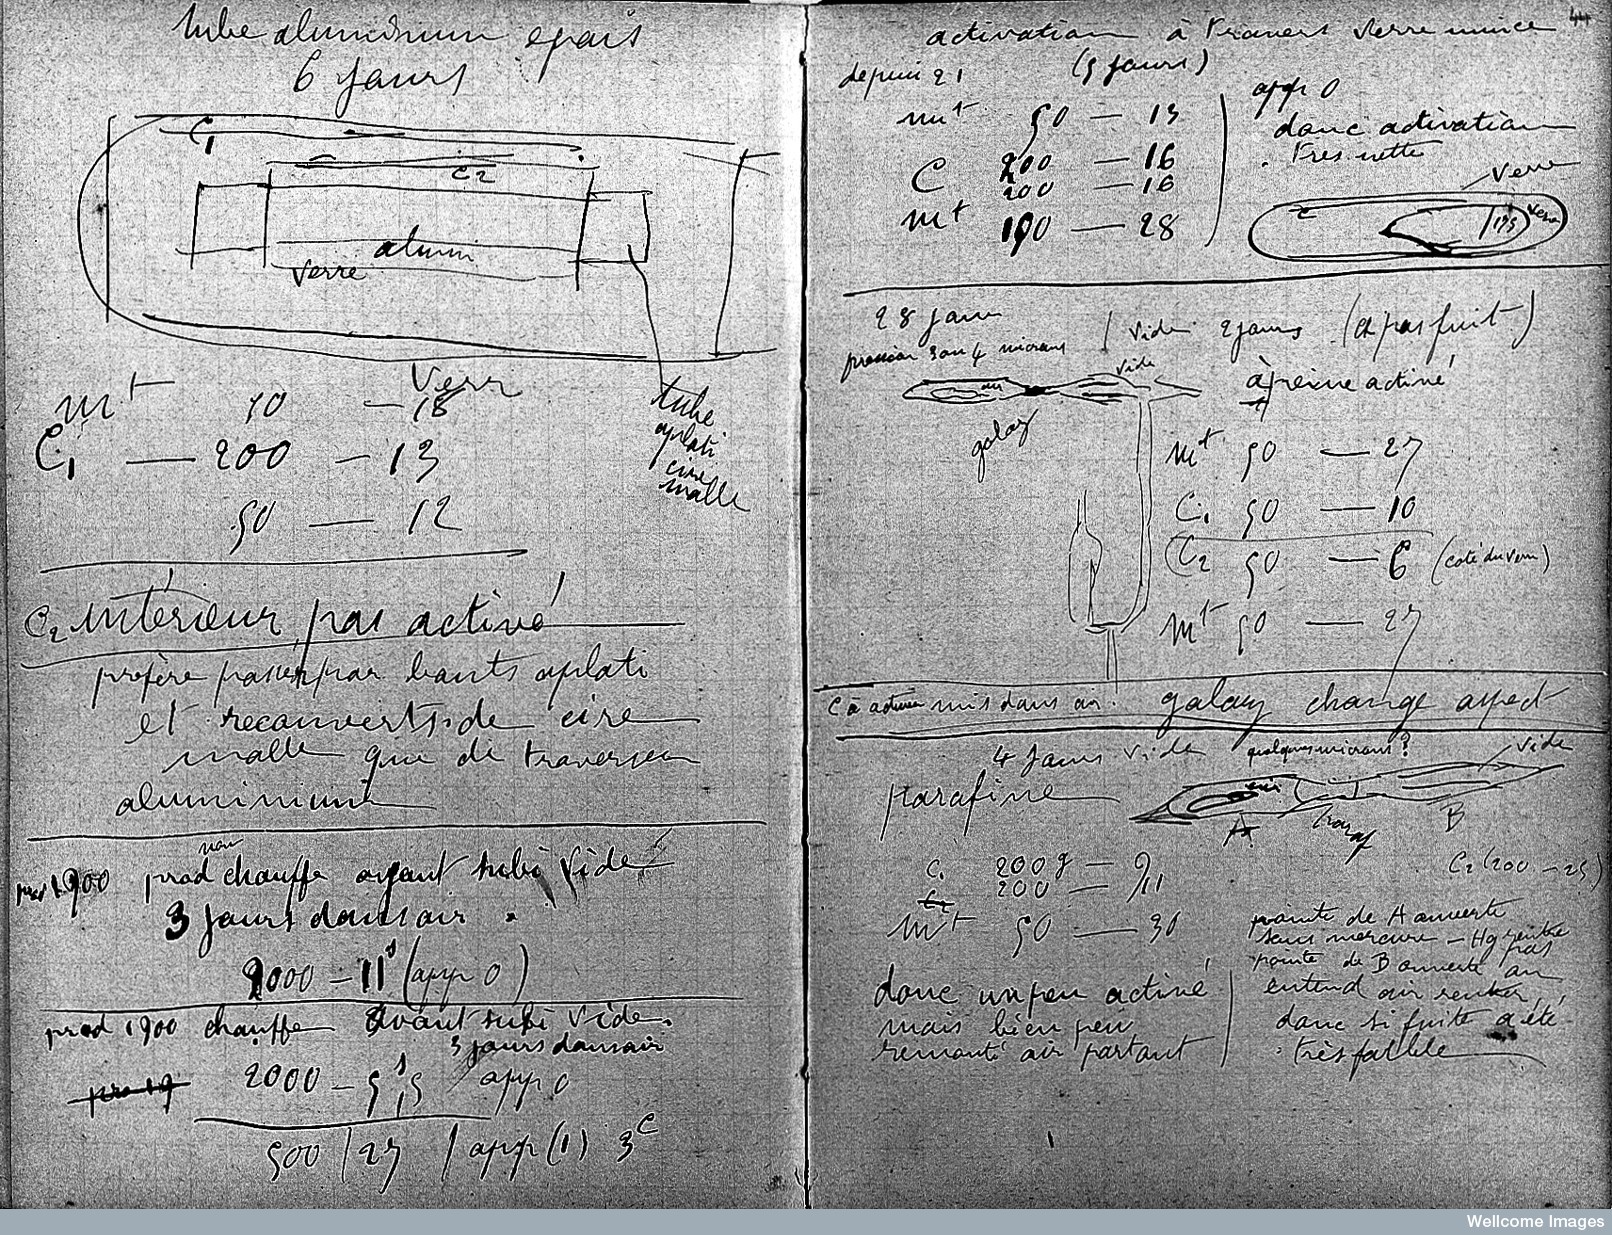 tube aluminium epais
6 jours
C1
C2
alumin
verre
Verr
mt 50 — 18
C1 — 200 — 13
50 — 12
tube
aplati
cire
molle
C2 intérieur pas activé
préfère passer par bouts aplati
et recouverts de cire
molle que de traverser
aluminium
prod 1900 prod non chauffe ayant subi vide
3 jours dans air.
2000 — 11s (app 0)
prod 1900 chauffe avant subi vide.
3 jours dans air
2000 — 5s,5 app 0
500 | 27 | app (1) 3c
44
activation à travers verre mince
depuis 21 (5 jours)
mt 50 — 13
C 200 — 16
200 — 16
mt 100 — 28
app 0
donc activation
très nette
verre
verre
28 janv
pression 3 ou 4 microns
vide 2 jours (a pas fuit)
vide
air
à peine activé
galaz
mt 50 — 27
C1 50 — 10
C2 50 — 6 (coté du verre)
mt 50 — 27
C à activer mis dans air. galaz change aspect
4 jours vide quelques microns?
vide
parafine
air
A
paraf
B
C1 200g — 9
C2 200 — 11
C2 (200 — 25)
mt 50 — 30
pointe de A ouverte
sous mercure — Hg rentre pas
pointe de B ouverte on
entend air rentrer,
donc si fuite a été
très faible
donc un peu activé
mais bien peu
remonté air partout